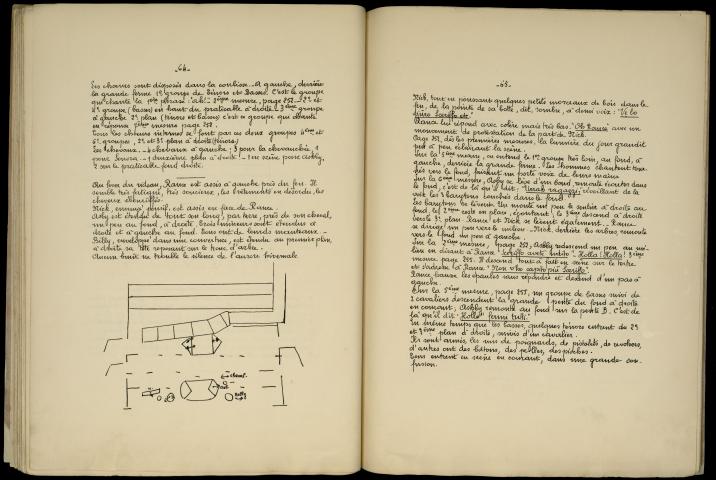 -64-
Les chœurs sont disposés dans la coulisse. A gauche, derrière
la grande ferme 1er groupe de ténors et Basses. C'est le groupe
qui chante la 1ère phrase "ah!"
2e groupe (basses) en haut du praticable à droite - 3ème groupe
à gauche 2e plan (ténors et basses) c'est ce groupe qui chante
en réponse mesure page 252.
Tous les chœurs internes se font par ces deux groupes 4ème et
5e groupes, 2e et 3e plan à droite (ténors)
Les chevaux. 4 chevaux à gauche; 3 pour la chevauchée, 1
pour Sonora - 1 deuxième plan à droite! - 1 en scène pour Ashby,
2 sur le praticable fond droite.
Au lever du rideau, Rance est assis à gauche près du feu. Il
semble très fatigué, très soucieux, les vêtements en désordre, les
cheveux ébouriffés.
Nick, ennuyé, pensif, est assis en face de Rance.
Ashby est étendu de tout son long, par terre, près de son cheval,
un peu au fond, à droite, trois mineurs sont étendus à
droite et à gauche au fond. Tous ont de longs manteaux -
Billy, enveloppé dans une couverture, est étendu au premier plan,
à droite sa tête reposant sur le tronc d'arbre.
Aucun bruit ne trouble le silence de l'aurore hivernale
cheval.
Nick
Billy
-65-
Nick, tout en poussant quelques petits morceaux de bois dans le
feu, de la pointe de sa botte, dit, sombre, à demi voix: "Ve lo
dico Sceriffo etc."
Rance lui répond avec colère mais très bas. "Oh Rance" avec un
mouvement de protestation de la part de Nick.
Page 251, dès les premières mesures, la lumière du jour grandit
peu à peu éclairant la scène.
Sur la 5ème mesure, on entend le 1er groupe très loin, au fond, à
gauche, derrière la grande ferme. Les hommes chantent tour-
nés vers le fond, faisant un porte voix de leurs mains
Sur la 6ème mesure, Ashby se lève d'un bond, remonte écouter dans
le fond, c'est de là qu'il dit: "Urrah ragazzi", éveillant de la
voix les 3 garçons couchés dans le fond.
Les garçons se lèvent. Un monte un peu le sentier à droite au
fond, le 2ème reste en place, écoutant, le 3ème descend à droite
vers le 3e plan. Rance et Nick se lèvent également. Rance
se dirige un peu vers le milieu. Nick, derrière les arbres remonte
vers le fond un peu à gauche.
Sur la 2ème mesure, (page 252, Ashby redescend un peu au mi-
lieu en disant à Rance "Sceriffo avete udito". Holla! Holla! 3ème
mesure, page 255. Il descend tout à fait en scène sur le
et s'adresse à Rance "Non v'ho capito più Sceriffo"
Rance hausse les épaules sans répondre et descend d'un pas à
gauche.
Sur la 5ème mesure, page 255, un groupe de basses suivi de
2 cavaliers descendent la grande pente du fond à droite
en courant, Ashby remonte au fond sur la pente B. C'est de
là qu'il dit "Holla! fermi tutti."
En même temps que les basses, quelques ténors entrent du 2e
et 3ème plan à droite, suivis d'un cavalier.
Ils sont armés, les uns de poignards, de pistolets, de revolvers,
d'autres ont des bâtons, des pelles, des pioches.
Tous entrent en scène en courant, dans une grande con-
fusion.